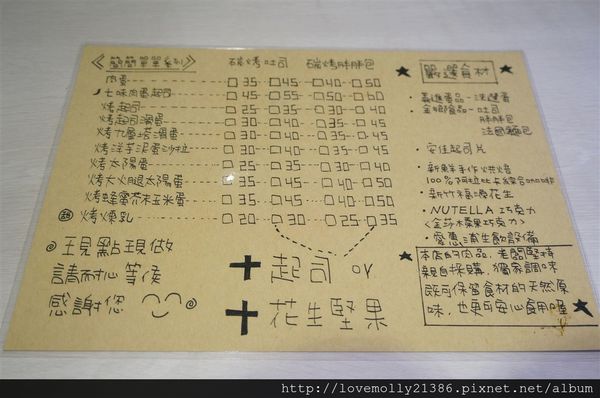 《簡簡單單系列》 碳烤吐司 碳烤胖胖包
肉蛋 □35 □45 □40 □50
七味肉蛋起司 □45 □55 □50 □60
烤起司 □25 □35 □30 □40
烤起司滑蛋 □30 □40 □35 □45
烤九層塔滑蛋 □30 □40 □35 □45
烤洋芋泥蛋沙拉 □30 □40 □35 □45
烤太陽蛋 □25 □35 □30 □40
烤大火腿太陽蛋 □35 □45 □40 □50
烤蜂蜜芥末玉米蛋 □35 □45 □40 □50
烤煉乳 □20 □30 □25 □35
◎現點現做
請耐心等候
感謝您 ◎
+起司 or
+花生堅果
★ 嚴選食材
• 義進蛋品-洗選蛋
• 金娘食品-吐司
胖胖包
法國麵包
• 安佳起司片
• 新鮮手作烘焙
100%阿拉比卡綜合咖啡
• 新竹福源花生
• NUTELLA 巧克力
(金莎榛果巧克力)
• 愛惠浦生飲設備
★本店的肉品,老闆堅持
親自採購,獨家調味
既可保留食材的天然原
味,也更可安心食用喔★
http://lovemolly21386.pixnet.net/album